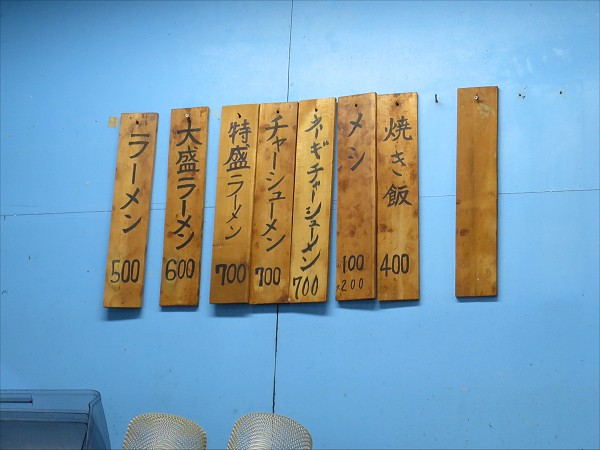 ラーメン
500
大盛ラーメン
600
特盛ラーメン
700
チャーシューメン
700
ネギチャーシューメン
700
メシ
100
200
焼き飯
400